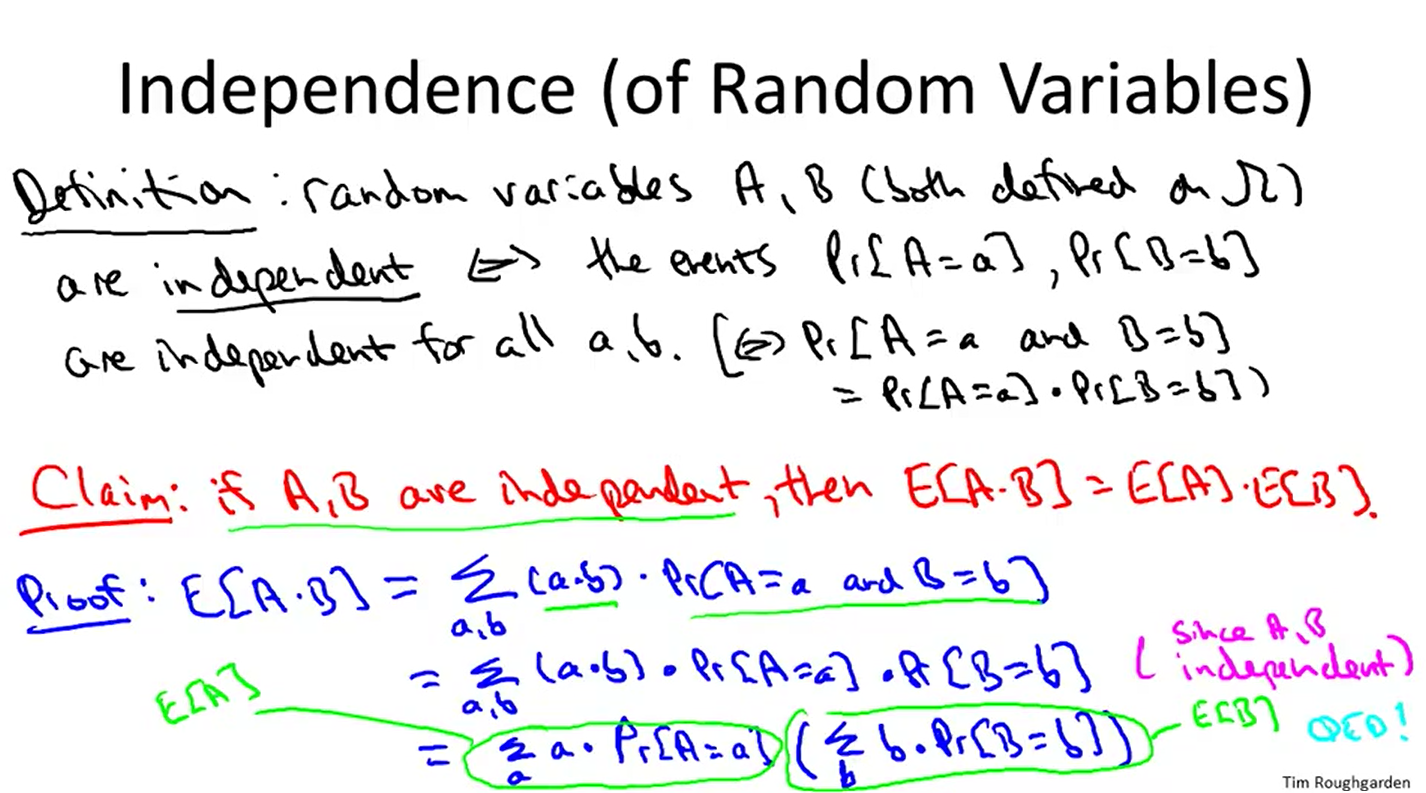 Independence (of Random Variables)
Definition: random variables A, B (both defined on Ω)
are independent ⇔ the events Pr[A=a], Pr[B=b]
are independent for all a,b. (⇔ Pr[A=a and B=b]
= Pr[A=a]·Pr[B=b])
Claim: if A,B are independent, then E[A·B] = E[A]·E[B].
Proof: E[A·B] = Σ_{a,b} (a·b)·Pr[A=a and B=b]
= Σ_{a,b} (a·b)·Pr[A=a]·Pr[B=b] (since A,B independent)
E[A]
= Σ_a a·Pr[A=a] (Σ_b b·Pr[B=b]) E[B] QED!
Tim Roughgarden